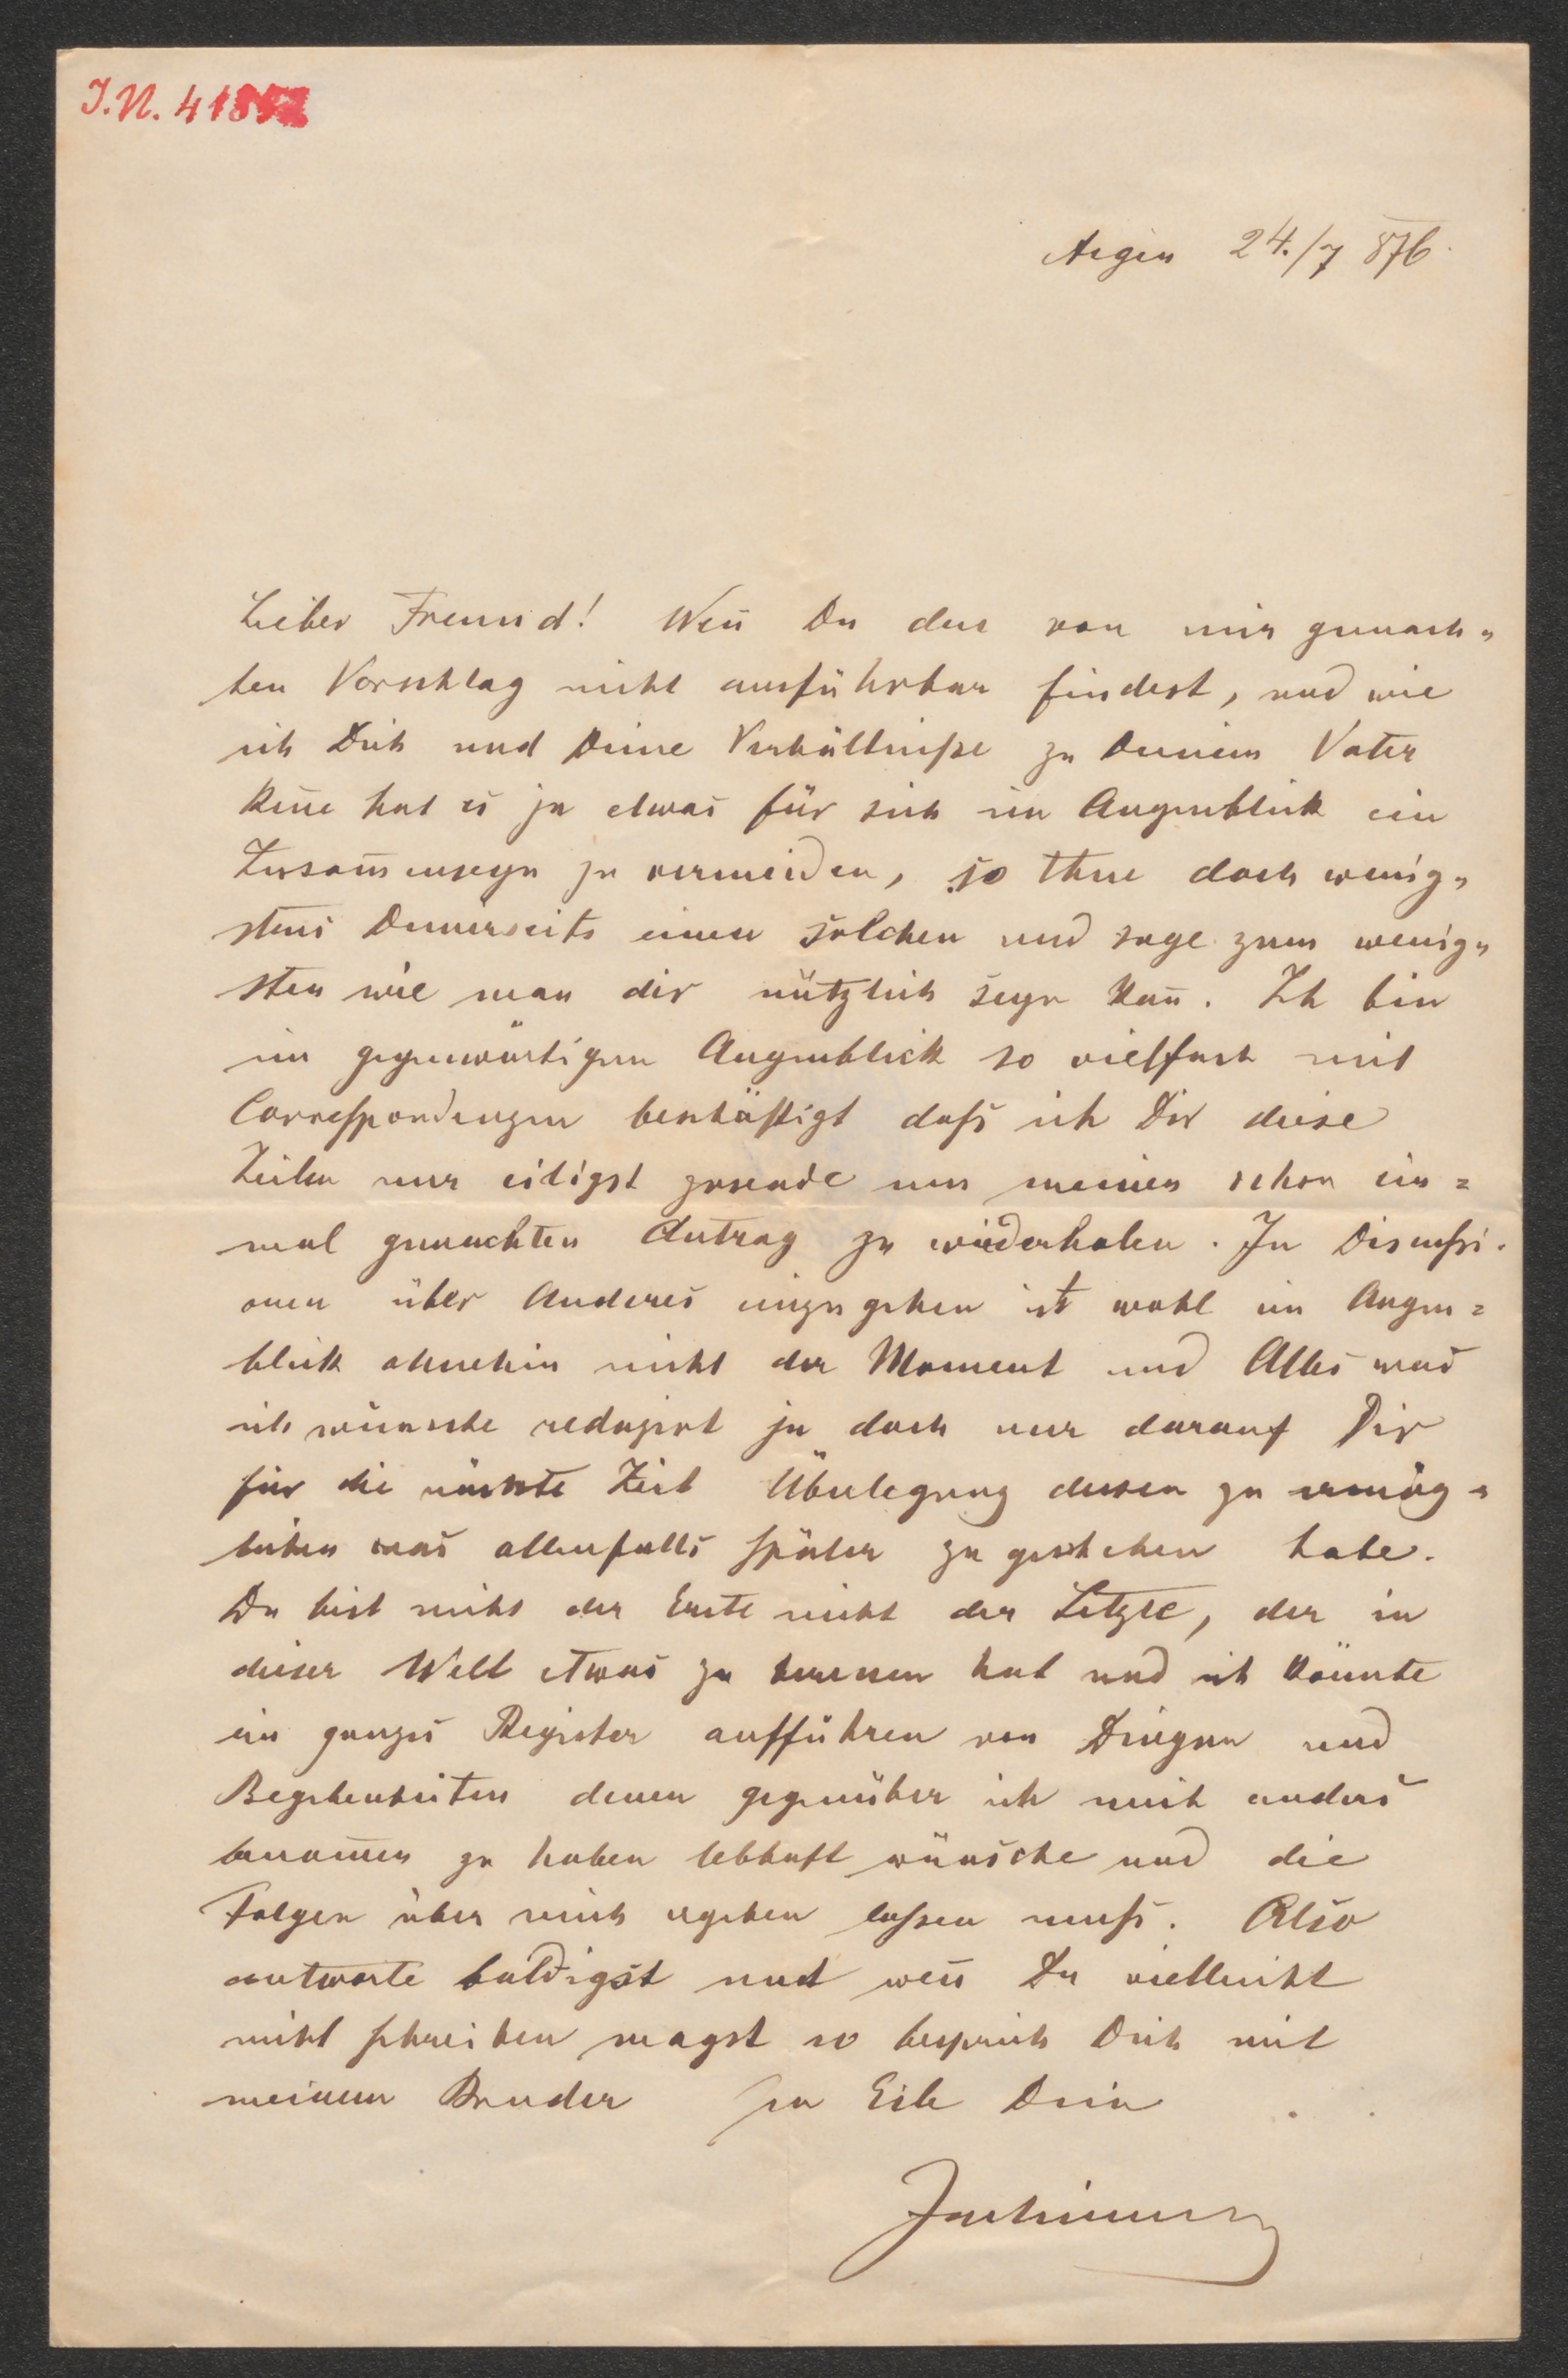 J.N. 4185
Aigen 24./7 876.
Lieber Freund! Weñ Du den von mir gemach„
ten Vorschlag nicht ausführbar findest, und wie
ich Dich und Deine Verhältniße zu Deinem Vater
keñe hat es ja etwas für sich im Augenblick ein
Zusam̄enseyn zu vermeiden, so thue doch wenig„
stens Deinerseits einen solchen und sage zum wenig„
sten wie man dir nützlich seyn kañ. Ich bin
im gegenwärtigen Augenblick so vielfach mit
Correspondenzen beschäftigt daß ich Dir diese
Zeilen nur eiligst zusende um meinen schon ein=
mal gemachten Antrag zu wiederholen. In Discußi.
onen über Anderes einzugehen ist wohl im Augen=
blick ohnehin nicht der Moment und Alles was
ich wünsche reduzirt ja doch nur darauf Dir
für die nächste Zeit Überlegung dessen zu ermög„
lichen was allenfalls später zu geschehen habe.
Du bist nicht der Erste nicht der Letzte, der in
dieser Welt etwas zu bereuen hat und ich könnte
ein ganzes Register aufführen von Dingen und
Begebenheiten denen gegenüber ich mich anders
benom̄en zu haben lebhaft wünsche und die
Folgen über mich ergehen laßen muß. Also
antworte baldigst und weñ Du vielleicht
nicht schreiben magst so besprich Dich mit
meinem Bruder In Eile Dein